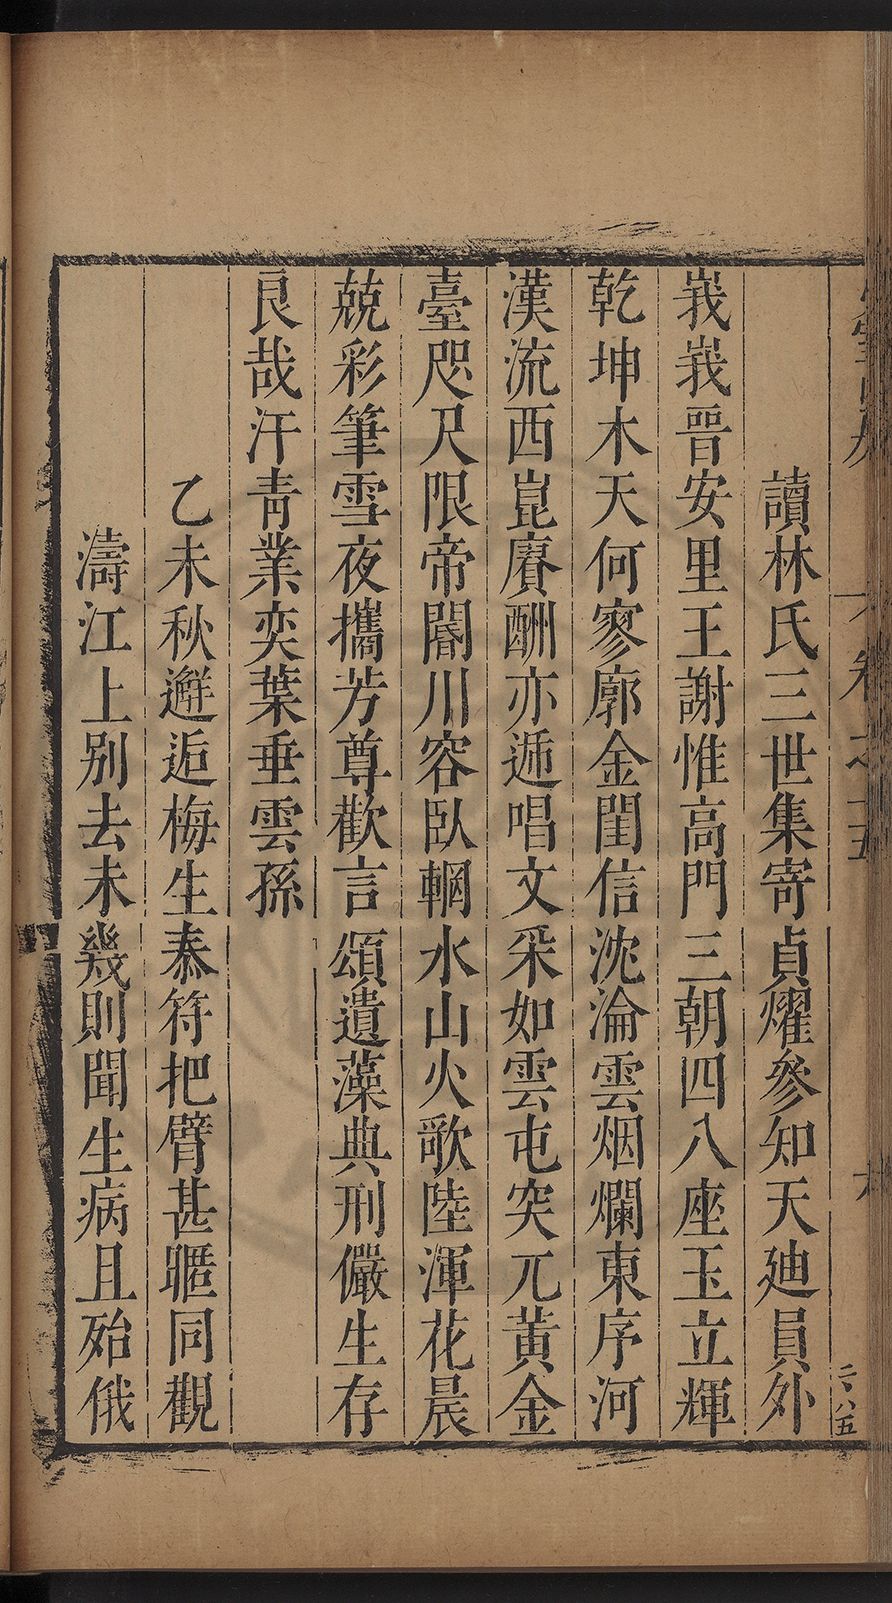 卷之十五
六
二八五
讀林氏三世集寄貞燿參知天廸員外
峩峩晉安里王謝惟高門三朝四八座玉立輝
乾坤木天何寥廓金閨信沈淪雲烟爛東序河
漢流西崑賡酬亦遞唱文采如雲屯突兀黃金
臺咫尺限帝閽川容臥輞水山火歌陸渾花晨
兢彩筆雪夜攜芳尊歡言頌遺藻典刑儼生存
良哉汗靑業奕葉垂雲孫
乙未秋邂逅梅生泰符把臂甚暱同觀
濤江上別去未幾則聞生病且殆俄